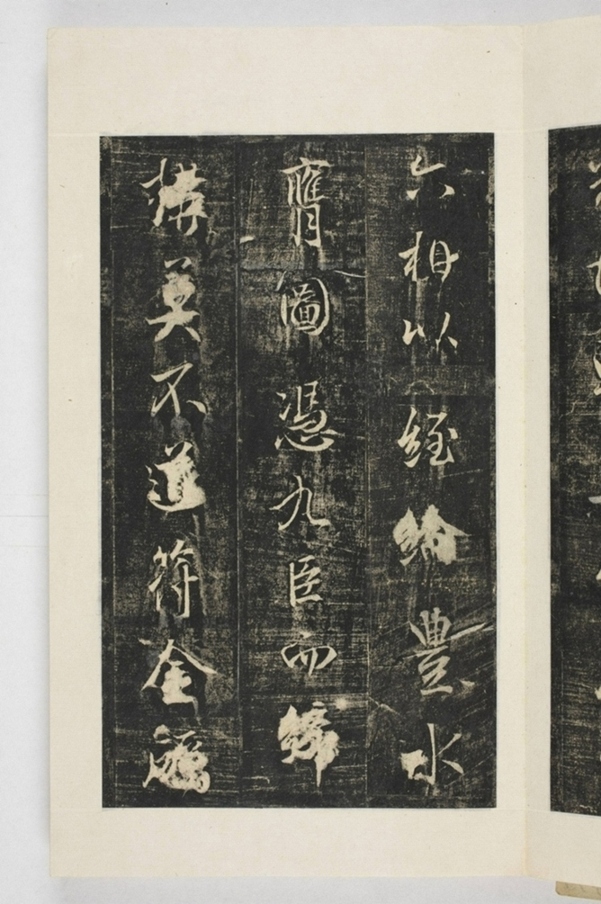 六相以經綸豐水
膺圖憑九臣而緝
構莫不道符金